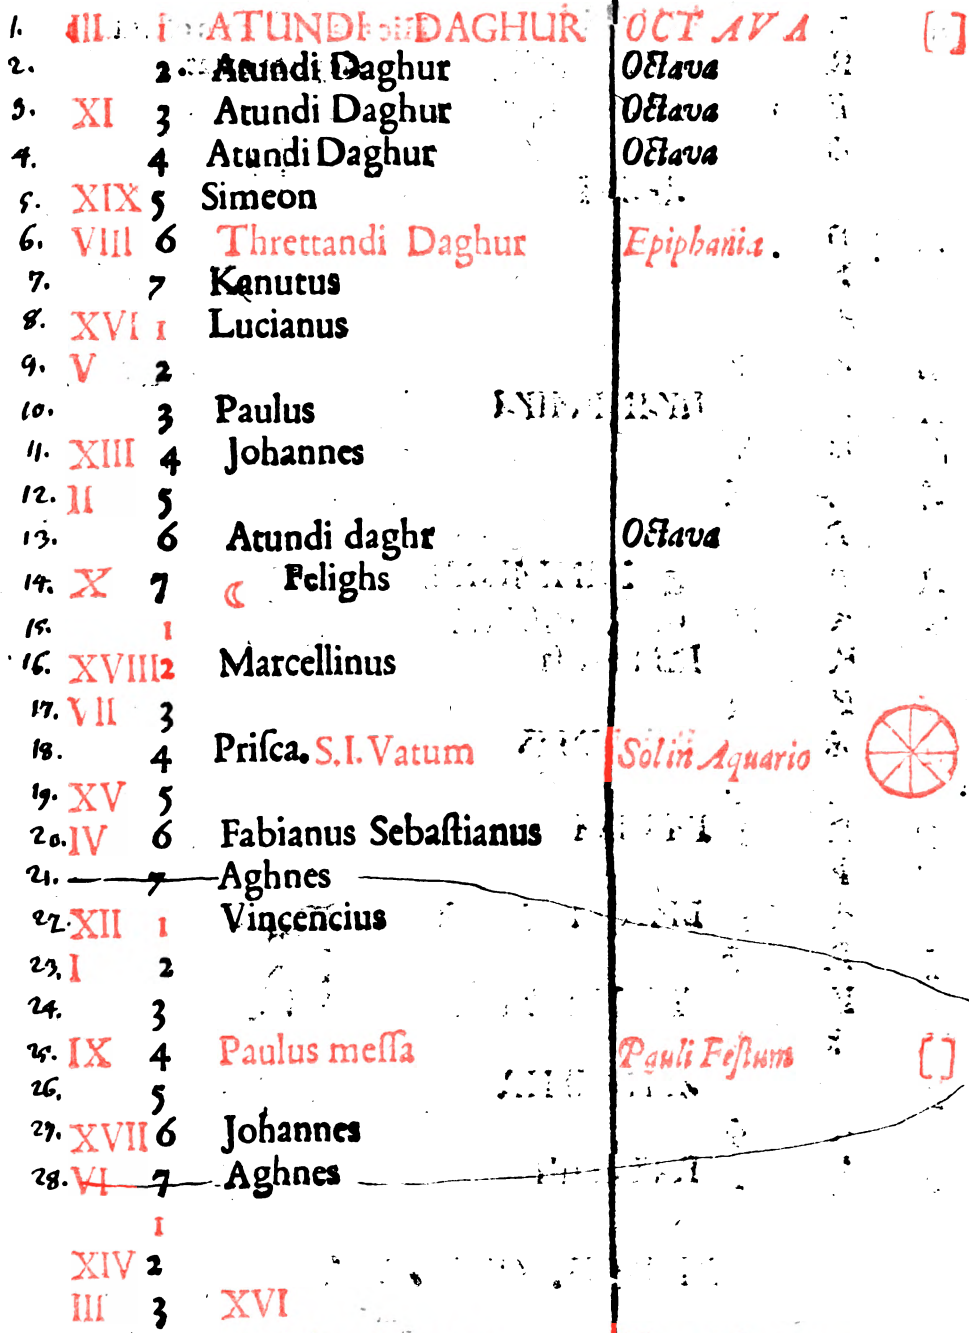 1. III 1 ATUNDI DAGHUR OCTAVA [ ]
2. 2. Atundi Daghur Octava
3. XI 3 Atundi Daghur Octava
4. 4 Atundi Daghur Octava
5. XIX 5 Simeon
6. VIII 6 Threttandi Daghur Epiphania.
7. 7 Kanutus
8. XVI 1 Lucianus
9. V 2
10. 3 Paulus
11. XIII 4 Johannes
12. II 5
13. 6 Atundi daghr Octava
14. X 7 ☾ Felighs
15. 1
16. XVIII 2 Marcellinus
17. VII 3
18. 4 Priſca. S.I. Vatum Sol in Aquario
19. XV 5
20. IV 6 Fabianus Sebaſtianus
21. 7 Aghnes
22. XII 1 Vincencius
23. I 2
24. 3
25. IX 4 Paulus meſſa Pauli Feſtum [ ]
26. 5
27. XVII 6 Johannes
28. VI 7 Aghnes
1
XIV 2
III 3 XVI